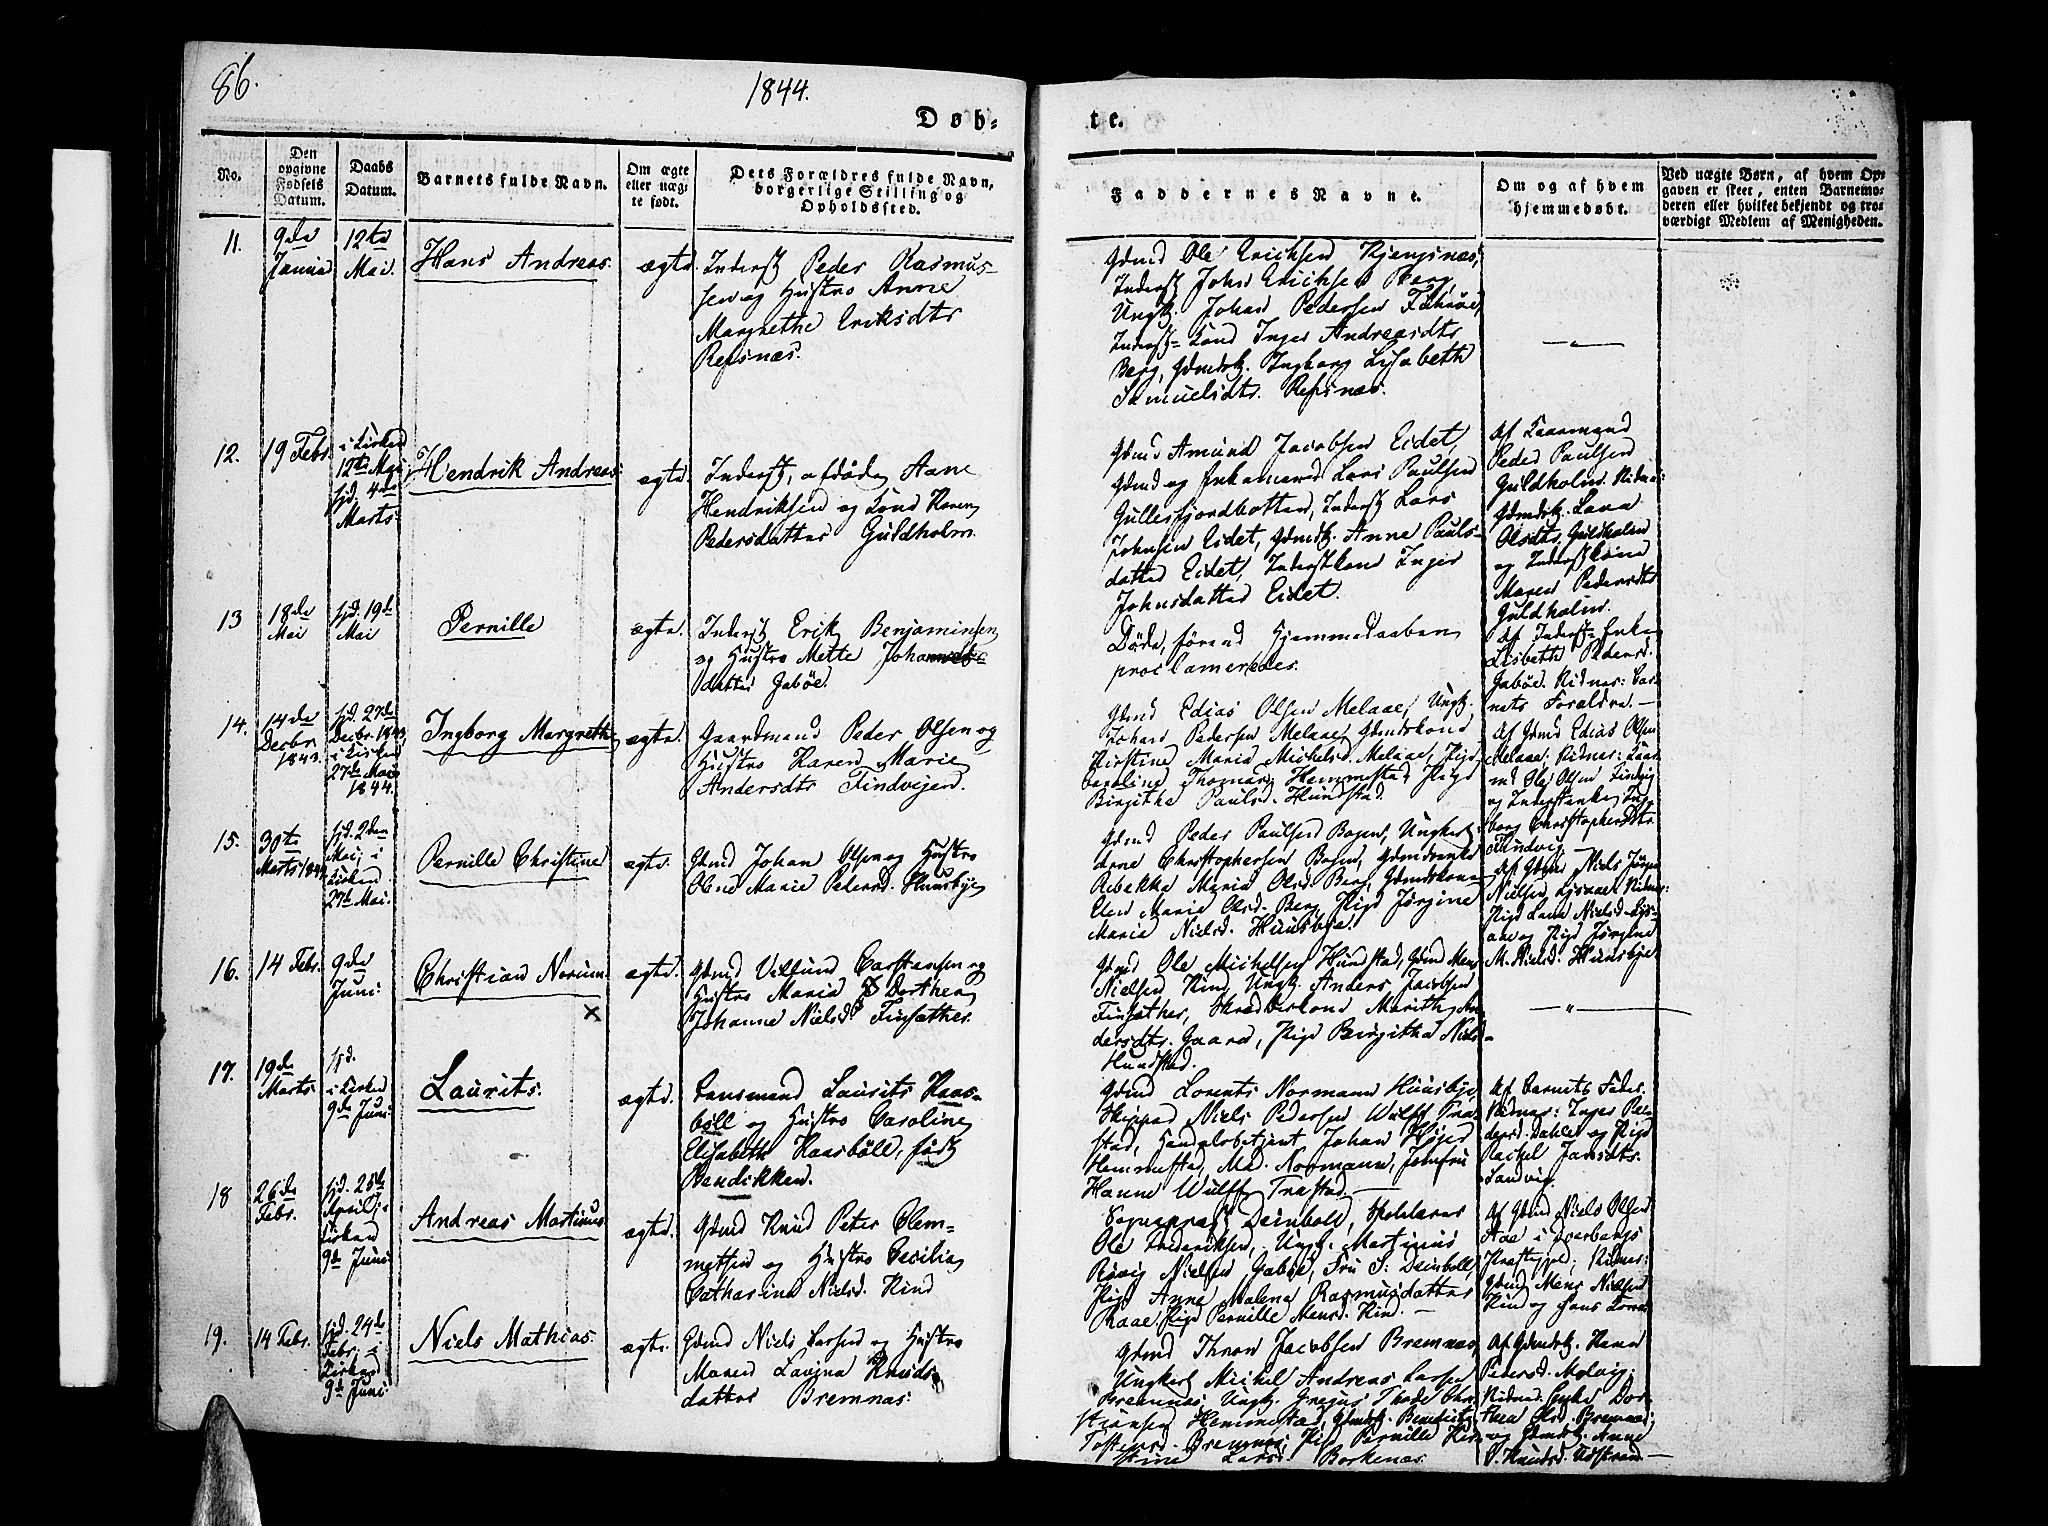 86.
1844.
Døb-
te.
No.
Den
opgivne
Fødsels
Datum.
Daabs
Datum.
Barnets fulde Navn.
Om ægte
eller uæg-
te født.
Dets Forældres fulde Navn,
borgerlige Stilling og
Opholdssted.
Faddernes Navne.
Om og af hvem
hjemmedøbt.
Ved uægte Børn, af hvem Op-
gaven er skeet, enten Barnemo-
deren eller hvilket bekjendt og tro-
værdigt Medlem af Menigheden.
11.
9de
Januar
12te
Mai.
Hans Andreas.
ægte.
Inderst Peder Rasmus-
sen og Hustro Anne
Margrethe Eriksdtr
Refsnæs.
Gdmd Ole Erichsen
Inderst John Erichsen Berg,
Ungk. Johan Pedersen
Inderst-Kone Inger Andreasdtr
Berg, Gdmdsk. Ingborg Lisabeth
Samuelsdtr. Refsnæs.
12.
19 Febr.
i Kirken
12te Mai
hjd. 4de
Marts.
Hendrik Andreas.
ægte.
Inderst, afdøde Aane
Hendriksen og Kone Karen
Pedersdatter Guldholm.
Gdmd Amund Jacobsen Eidet,
Gdmd og Enkemand Lars Paulsen
Gullesfjordbotten, Inderst Lars
Johnsen Eidet, Gdmdsk. Anne Pauls-
datter Eidet, Inderstkone Inger
Johnsdatter Eidet.
Af Kaarmand
Peder Paulsen
Guldholm. Vidner:
Gdmdsk. Lava
Olsdtr. Guldholm
og Inderstkone
Maren Pedersdtr
Guldholm.
13
18de
Mai
hjd. 19de
Mai
Pernille
ægte.
Inderst Erik Benjaminsen
og Hustro Mette Johannes-
datter Gabøe.
Døde, førend Hjemmedaaben
proclameredes.
Af Inderst-Enke
Lisbeth Pedersd.
Gabøe. Vidner: Bar-
nets Forældre. —
14.
14de
Decbr.
1843.
hjd. 27de
Decbr. 1843,
i Kirken
27de Mai
1844.
Ingborg Margrethe
ægte.
Gaardmand Peder Olsen og
Hustro Karen Marie
Andersdtr Tindvigen.
Gdmd Edias Olsen Melaae, Ungk.
Johan Pedersen Melaae, Gdmdskone
Kirstine Maria Michelsd. Melaae, Pige
Caroline Thomasd. Hemmestad, Pige
Birgithe Paulsd. Hundstad.
Af Gdmd Edias Olsen
Melaae; Vidner: Kaar-
md Ole Olsen Tindvig
og Inderstenke Ing-
borg Christophersdtr
Tindvig. —
15.
30te
Marts 1844
hjd. 2den
Mai, i
Kirken
27de Mai.
Pernille Christine
ægte.
Gdmd Johan Olsen og Hustro
Olene Marie Petersd. Huusbye
Gdmd Peder Paulsen Bogen, Ungkarl
Arne Christophersen Bogen, Gdmdenke
Rebekka Maria Olsd. Berg, Gdmdskone
Elen Marie Olsd. Berg, Pige Jørgine
Maria Nielsd. Huusbye.
Af Gdmd Niels Jørgen
Nielsen Vidner:
Pige Lava Nielsd.
og Pige Jørgine
M. Nielsd. Huusbye
16.
14 Febr.
9de
Juni.
Christian Norum.
x
ægte.
Gdmd Villund Carstensen og
Hustro Maria Dorthea
Johanne Nielsd. Finsæther.
Gdmd Ole Michelsen Hundstad, Gdmd Mens
Nielsen Kind, Ungk. Anders Jacobsen
Finsæther, Skrædderkone Marith An-
dersdtr. Gaara, Pige Birgitha Niels-
Hundstad.
17.
19de
Marts.
hjd.
i Kirken
9de Juni.
Laurits.
ægte.
Lensmand Laurits Haas-
böll og Hustro Caroline
Elisabeth Haasböll, født
Bendikken.
Gdmd Lorents Normann Huusbye,
Skipper Niels Pedersen Wulff Tra-
stad, Handelsbetjent Johan Højer
Hemmestad, Md. Normann, Jomfru
Hanne Wulff Trastad. —
Af Barnets Fader.
Vidner: Inger Pe-
dersd. Dahle og Pige
Rachel Jansdtr.
Sandvig.
18
26de
Febr.
hjd. 25de
April, i
Kirken
9de Juni.
Andreas Martinus
ægte.
Gdmd Knud Peter Clem-
metsen og Hustro Cecilia
Catharina Nielsd. Kind
Sognepræst Deinboll, Skolelærer
Ole Frederiksen, Ungk. Martinus
Røvig Nielsen Gabøe, Fru S: Deinboll,
Pige Anne Malena Rasmusdatter
Raae, Pige Pernille Mensd. Kind. —
Af Gdmd Niels Olsen
i Qværbergs
Præstegjeld; Vidner:
Gdmd Mens Nielsen
Kind og hans Kone
19.
14 Febr.
hjd. 24de
Febr., i
Kirken
9de Juni.
Niels Mathias.
ægte.
Gdmd Niels Larsen og Hustro
Maren Lavina Knuds-
datter Bremnæs.
Gdmd Thron Jacobsen Bremnæs,
Ungkarl Michel Andreas Larsen
Bremnæs, Ungk. Grejus Thode Chri-
stiansen Hemmestad, Gdmdsk. Benedicte
Tostensd. Bremnæs, Pige Pernille Kir-
stine Larsd. Borkenæs.
Af Gdmdsk. Hanna
Petersd. Melvig;
Vidner: Enke Dor-
thea Olsd. Bremnæs,
og Gdmdsk. Anne
P. Knudsd. Udstrand. —